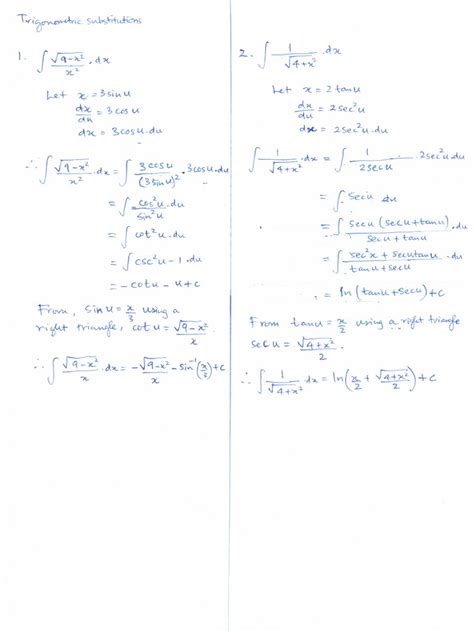 Trigonometric Substitutions
1. ∫ √(9-x²)/x² · dx
Let x = 3sinu
dx/du = 3cosu
dx = 3cosu·du
∴ ∫ √(9-x²)/x² · dx = ∫ 3cosu/(3sinu)² · 3cosu·du
= ∫ cos²u/sin²u · du
= ∫ cot²u · du
= ∫ csc²u - 1 · du
= -cotu - u + c
From, sinu = x/3 using a
right triangle, cotu = √(9-x²)/x
∴ ∫ √(9-x²)/x · dx = -√(9-x²)/x - sin⁻¹(x/3) + c
2. ∫ 1/√(4+x²) · dx
Let x = 2tanu
dx/du = 2sec²u
dx = 2sec²u·du
∫ 1/√(4+x²) · dx = ∫ 1/2secu · 2sec²u du
= ∫ secu du
= ∫ secu (secu+tanu)/secu + tanu · du
= ∫ sec²x + secutanu/tanu + secu · du
= ln(tanu+secu) + c
From tanu = x/2 using a right triangle
secu = √(4+x²)/2.
∴ ∫ 1/√(4+x²) dx = ln(x/2 + √(4+x²)/2) + c